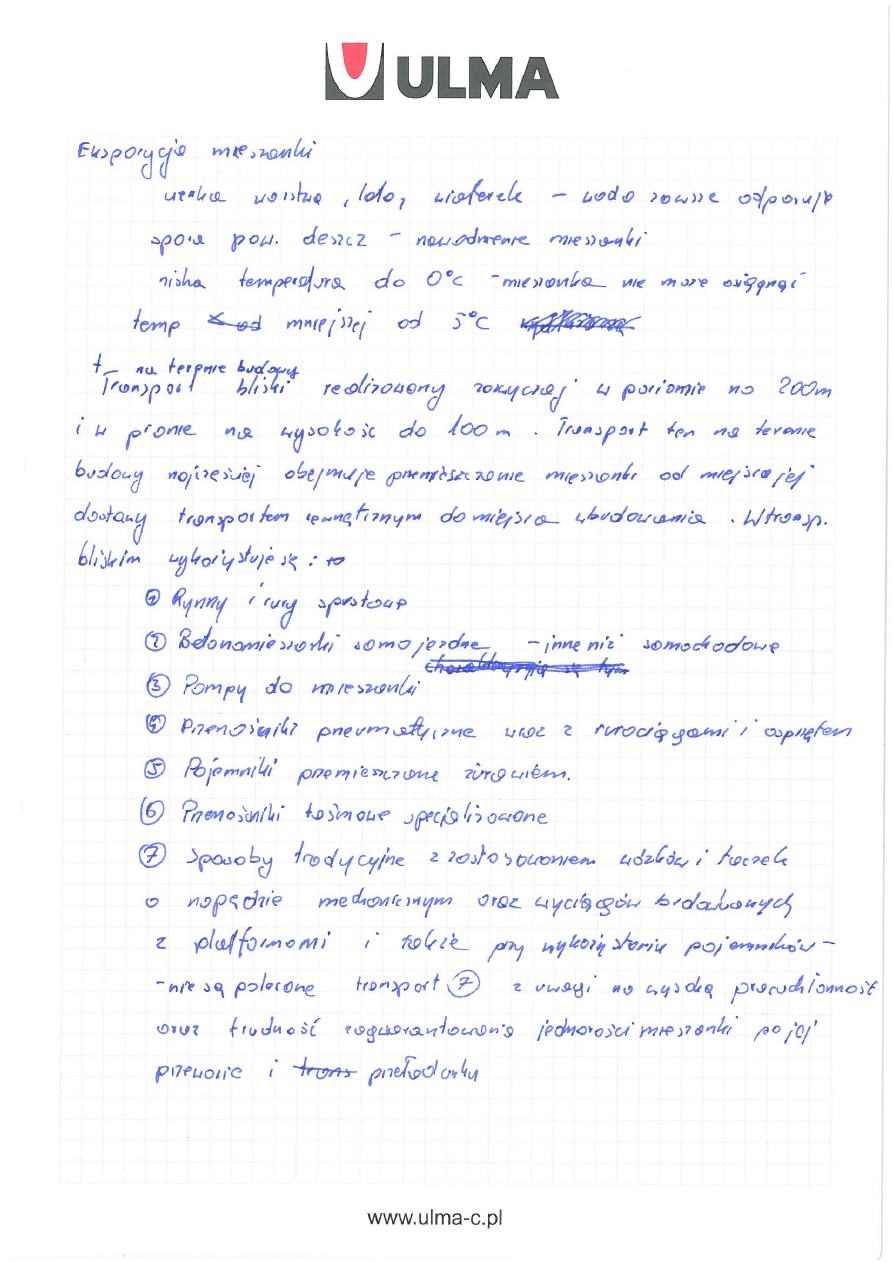 ULMA
Ekspozycja mieszanki
cienka warstwa, lato, wiaterek – woda zawsze odparuje
spora pow. deszcz – nawodnienie mieszanki
niska temperatura do 0°C – mieszanka nie może osiągnąć
temp < od mniejszej od 5°C
t – na terenie budowy
Transport bliski realizowany zazwyczaj w poziomie na 200m
i w pionie na wysokość do 100m. Transport ten na terenie
budowy najczęściej obejmuje przemieszczenie mieszanki od miejsca jej
dostawy transportem zewnętrznym do miejsca wbudowania. W transp.
bliskim wykorzystuje się: to
① Rynny i rury spustowe
② Betonomieszarki samojezdne – inne niż samochodowe
charakteryzują się tym
③ Pompy do mieszanki
④ Przenośniki pneumatyczne wraz z rurociągami i osprzętem
⑤ Pojemniki przemieszczane żurawiem.
⑥ Przenośniki taśmowe specjalizowane
⑦ Sposoby tradycyjne z zastosowaniem wózków i taczek
o napędzie mechanicznym oraz wyciągów budowlanych
z platformami i także przy wykorzystaniu pojemników –
– nie są polecane transport ⑦ z uwagi na wysoką pracochłonność
oraz trudność zagwarantowania jednorodności mieszanki po jej
przewozie i trans przeładunku
www.ulma-c.pl